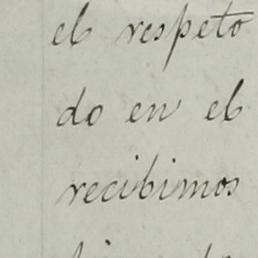 el respeto
do en el
recibimos